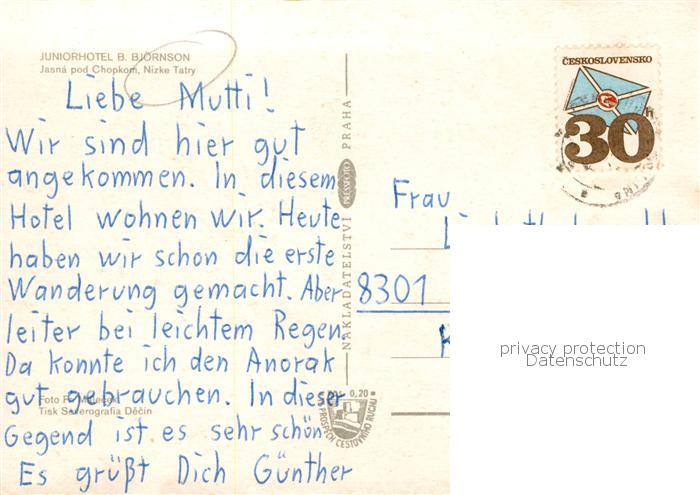 JUNIORHOTEL B. BJÖRNSON
Jasná pod Chopkom, Nízke Tatry
Liebe Mutti!
Wir sind hier gut
angekommen. In diesem
Hotel wohnen wir. Heute
haben wir schon die erste
Wanderung gemacht. Aber
leiter bei leichtem Regen
Da konnte ich den Anorak
gut gebrauchen. In dieser
Gegend ist es sehr schön
Es grüßt Dich Günther
Foto P.
Tisk Severografia Děčín
NAKLADATELSTVÍ PRESSFOTO PRAHA
0,20
PROSPĚCH CESTOVNÍHO RUCHU
ČESKOSLOVENSKO
30
Frau
8301
privacy protection
Datenschutz